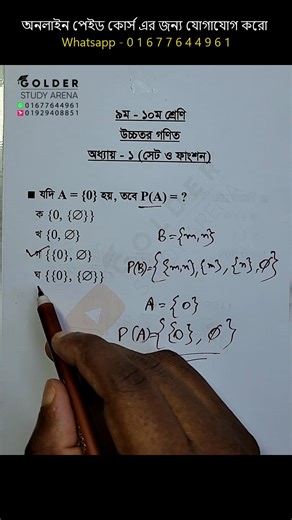 অনলাইন পেইড কোর্স এর জন্য যোগাযোগ করো
Whatsapp - 0 1 6 7 7 6 4 4 9 6 1
GOLDER
STUDY ARENA
01677644961
01929408851
৯ম - ১০ম শ্রেণি
উচ্চতর গণিত
অধ্যায় - ১ (সেট ও ফাংশন)
■ যদি A = {0} হয়, তবে P(A) = ?
ক {0, {∅}}
খ {0, ∅}
গ {{0}, ∅}
ঘ {{0}, {∅}}
B = {m,n}
P(B) = {{m,n}, {m}, {n}, ∅}
A = {0}
P(A) = {{0}, ∅}